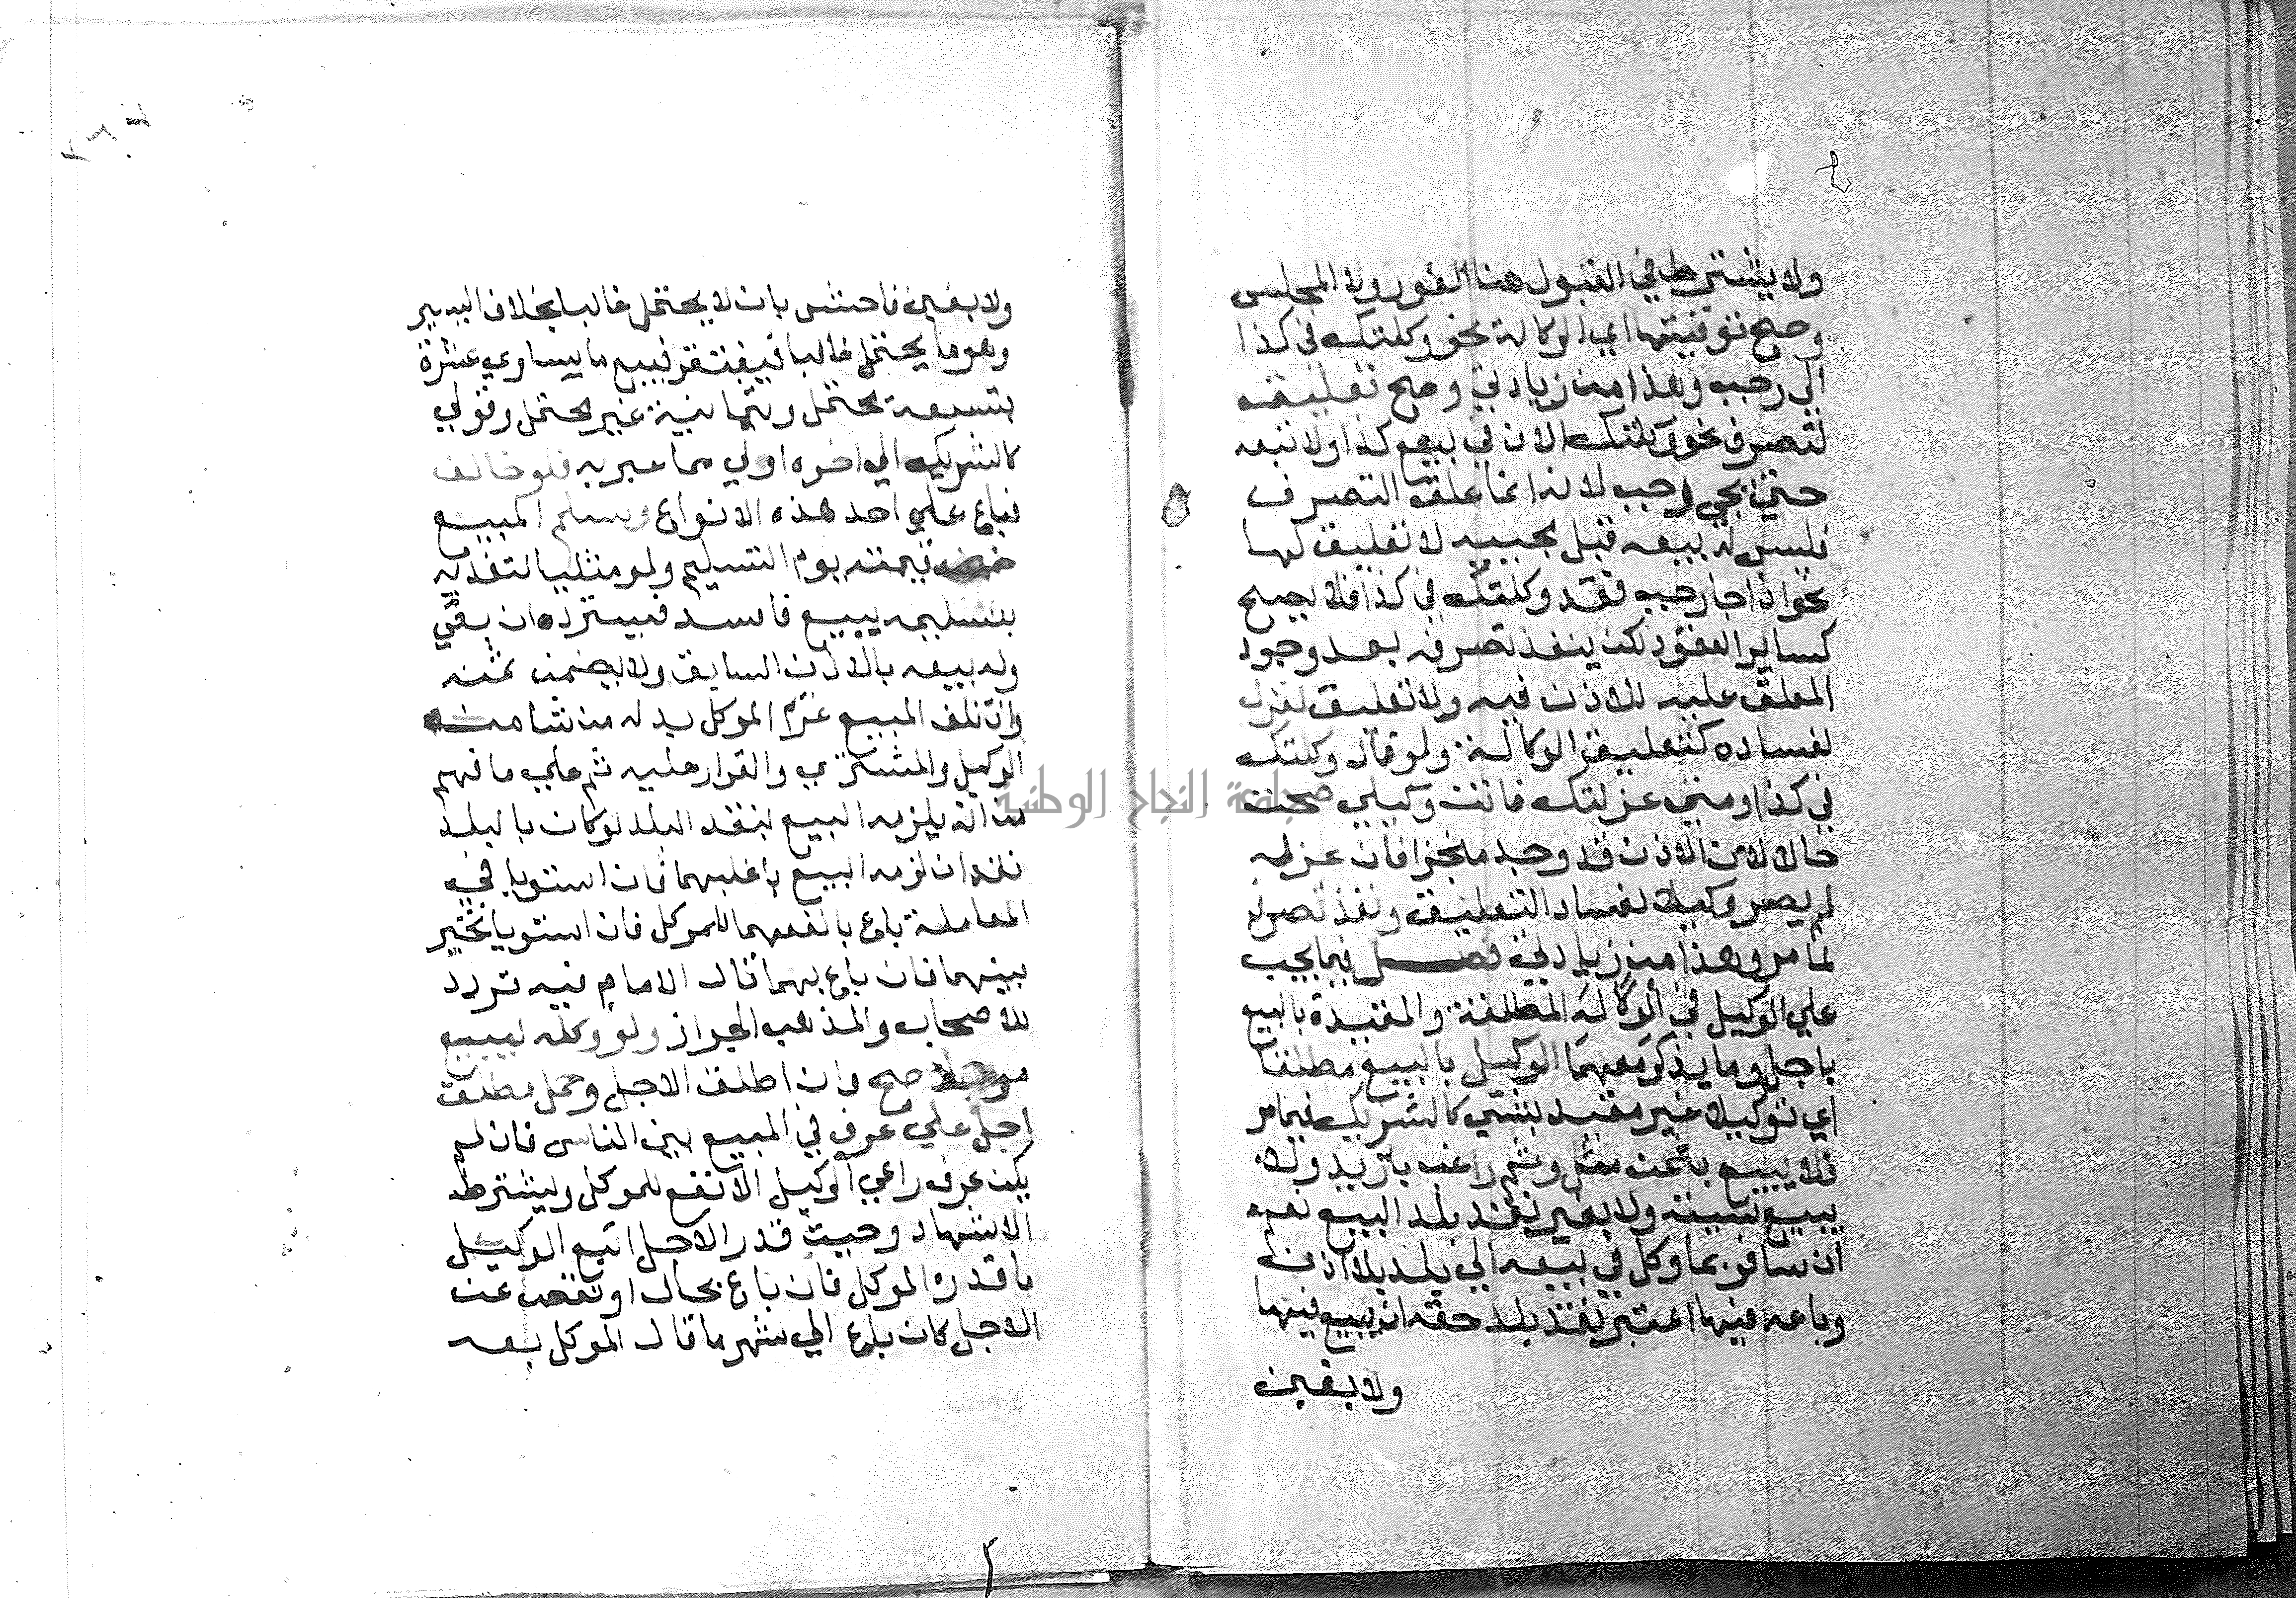 ولا يشترط في القبول هنا الفور ولا المجلس
وصح توقيتها اي الوكالة نحو وكلتك في كذا
الي رجب وهذا من زيادتي وصح تعليقه
لتصرف نحو وكلتك الان في بيع كذا ولا تبعه
حتي يجي رجب لانه انما علق التصرف
فليس له بيعه قبل مجييه لا تعليق لها
نحو اذا جا رجب فقد وكلتك في كذا فلا يصح
كساير العقود لكن ينفذ تصرفه بعد وجود
المعلق عليه للاذن فيه ولا تعليق لعزل
لفساده كتعليق الوكالة ولو قال وكلتك
في كذا ومتي عزلتك فانت وكيلي صحت
حالا لان الاذن قد وجد منجزا فان عزله
لم يصر وكيلا لفساد التعليق ونفذ تصرفه
لما مر وهذا من زيادتي فصل فيما يجب
علي الوكيل في الوكالة المطلقة والمقيدة بالبيع
باجل وما يذكر معهما الوكيل بالبيع مطلقا
اي توكيلا غير مقيد بشي كالشريك فيما مر
فلا يبيع بثمن مثل وثم راغب بازيد ولا
يبيع نسيئة ولا بغير نقد بلد البيع نعم
ان سافر بما وكل في بيعه الي بلد بلا اذن
وباعه فيها اعتبر نقد بلد حقه ان يبيع فيها
ولا بغين
ولا بغين فاحش بان لا يحتمل غالبا بخلاف اليسير
وهو ما يحتمل غالبا فيغتفر فبيع ما يساوي عشرة
بتسعة محتمل وبثمانية غير محتمل وقولي
كالشريك الي اخره اولي مما عبر به فلو خالف
فباع علي احد هذه الانواع وسلم المبيع
ضمن قيمته يوم التسليم ولو مثليا لتعديه
بتسليمه ببيع فاسد فيسترده ان بقي
وله بيعه بالاذن السابق ولا يضمن ثمنه
وان تلف المبيع غرم الموكل بدله من شا من
الوكيل والمشتري والقرار عليه ثم علي ما فهم
من انه يلزمه البيع بنقد البلد لو كان بالبلد
نقدان لزمه البيع باغلبهما فان استويا في
المعاملة باع بانفعهما للموكل فان استويا تخير
بينهما فان باع بهما قال الامام فيه تردد
للاصحاب والمذهب الجواز ولو وكله ليبيع
موجلا صح وان اطلق الاجل وحمل مطلق
اجل علي عرف في المبيع بين الناس فان لم
يكن عرف راعي الوكيل الانفع للموكل ويشترط
الاشهاد وحيث قدر الاجل اتبع الوكيل
ما قدره الموكل فان باع بحال او نقص عن
الاجل كان باع الي شهر ما قال الموكل بعه
جامعة النجاح الوطنية